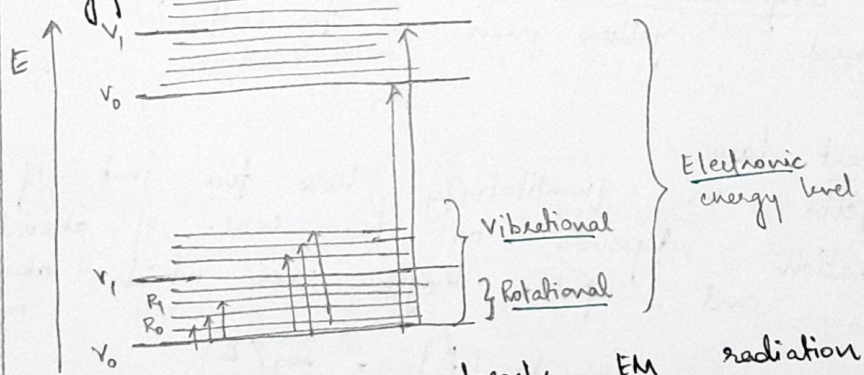 V1
E
V0
Electronic
energy level
Vibrational
V1
R1
Rotational
R0
V0
EM radiation